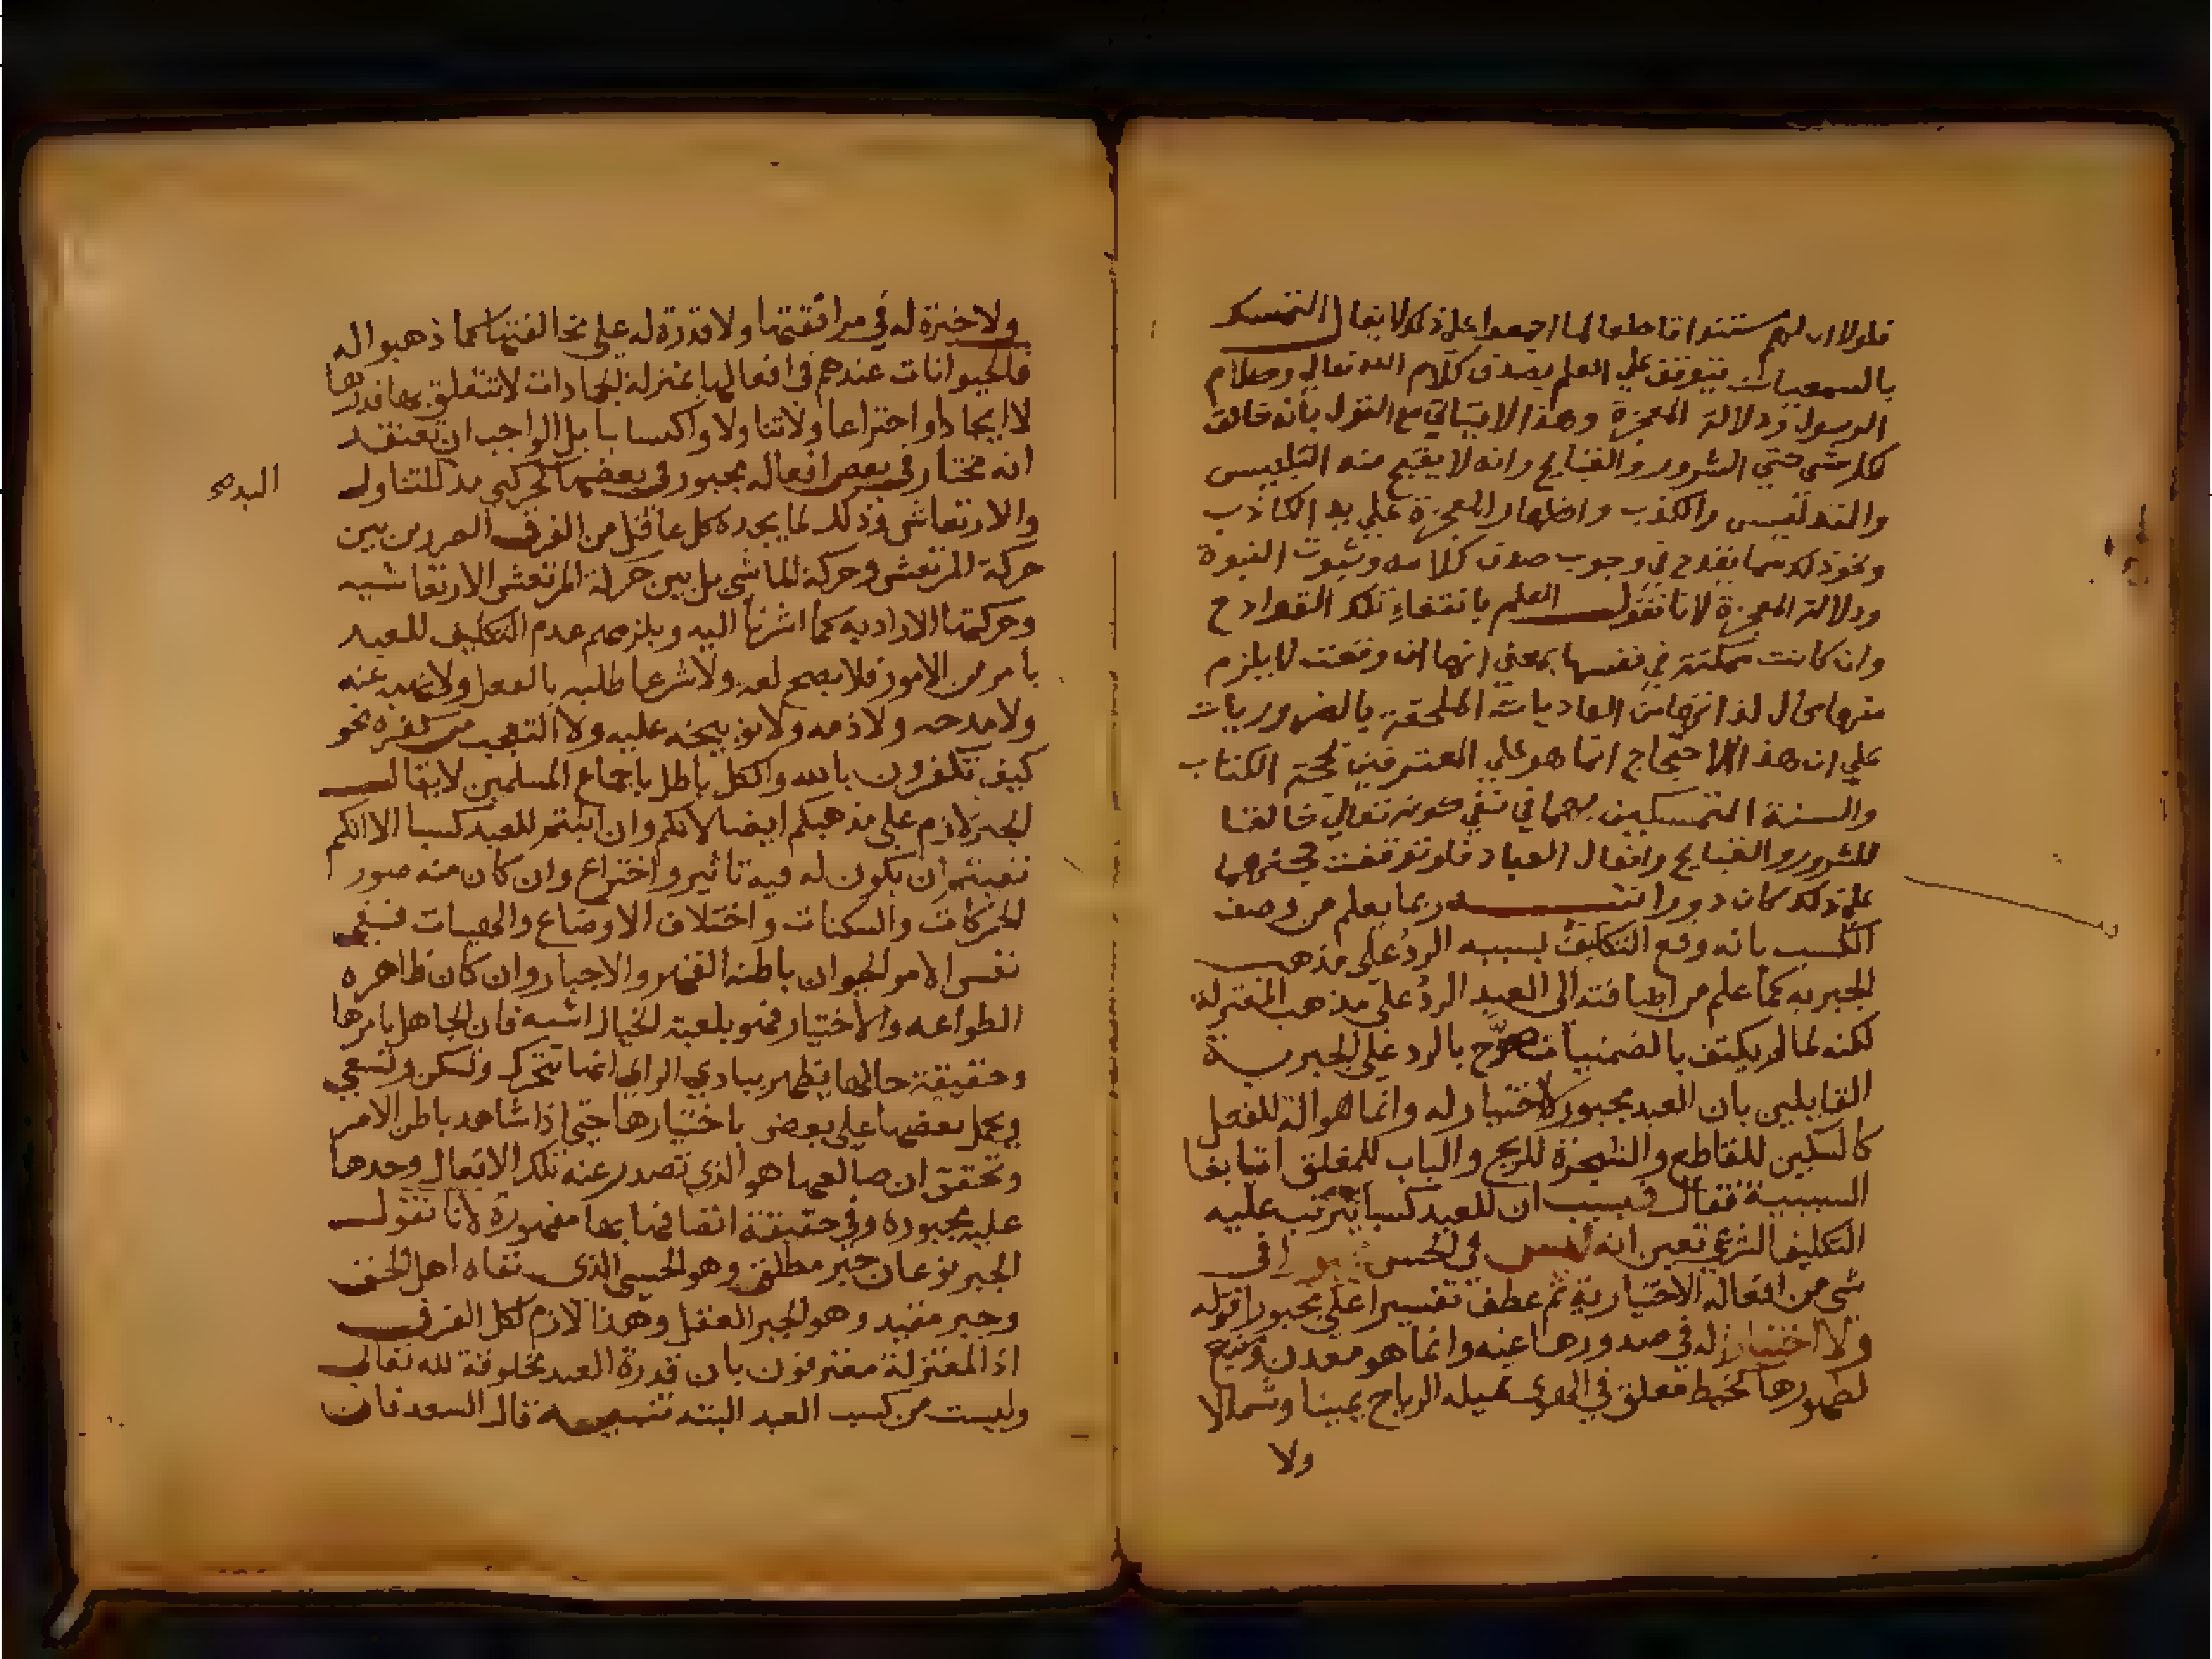 فلولا ان لهم مستندا قاطعا لما اجمعوا علي ذلك لا يقال التمسك
بالسمعيات يتوقف علي العلم بصدق كلام الله تعالي وكلام
الرسول ودلالة المعجزة وهذا لا يتاتي مع القول بانه خالق
كل شي حتي الشرور والقبايح وانه لا يقبح منه التلبيس
والتدليس والكذب واظهار المعجزة علي يد الكاذب
ونحو ذلك مما يقدح في وجوب صدق كلامه وثبوت النبوة
ودلالة المعجزة لانا نقول العلم بانتفاء تلك القوادح
وان كانت ممكنة في نفسها بمعني انها ان وقعت لا يلزم
منها محال لذاتها من العاديات الملحقة بالضروريات
علي ان هذا الاحتجاج انما هو علي المعترفين بحجة الكتاب
والسنة المتمسكين بهما في نفي كونه تعالي خالقا
للشرور والقبايح وافعال العباد فلو توقفت حجتهما
علي ذلك كان دورا تنبيه ربما يعلم من وصف
الكسب بانه وقع التكليف بسببه الرد علي مذهب
الجبريه كما علم من اضافته الي العبد الرد علي مذهب المعتزلة
لكنه لما لم يكتف بالضمنيات صرح بالرد علي الجبرية
القايلين بان العبد مجبور لا اختيار له وانما هو الة للفعل
كالسكين للقاطع والشجرة للريح والباب للمغلق اتيا بفا
السببية فقال فبسبب ان للعبد كسبا يترتب عليه
التكليف الشرعي تعين انه ليس في الحس مجبورا في
شي من افعاله الاختيارية ثم عطف تفسيرا علي مجبورا قوله
ولا اختيارا له في صدورها عنه وانما هو معدن ومنبع
لظهورها كخيط معلق في الهوي تميله الرياح يمينا وشمالا
ولا
ولا خيرة له في موافقتها ولا قدرة له علي مخالفتها كما ذهبوا اله
فالحيوانات عندهم في افعالها بمنزلة الجمادات لا تتعلق بها قدرها
لا ايجادا واختراعا ولا تناولا واكتسابا بل الواجب ان تعتقد
انه مختار في بعض افعاله مجبور في بعضها كحركتي يد المتناول
والارتعاشي وذلك لما يجده كل عاقل من الفرق الضروري بين
حركة المرتعش وحركة الماشي بل بين حركة المرتعش الارتعاشيه
وحركتها الارادية كما اشرنا اليه ويلزمهم عدم التكليف للعبد
بامر من الامور فلا يصح لغة ولا شرعا طلبه بالفعل ولا نهيه عنه
ولا مدحه ولا ذمه ولا توبيخه عليه ولا التعجب من كفره نحو
كيف تكفرون بالله والكل باطل باجماع المسلمين لا يقال
الجبر لازم علي مذهبكم ايضا لانكم وان اثبتم للعبد كسبا الا انكم
نفيتم ان يكون له فيه تاثير واختراع وان كان منه صور
الحركات والسكنات واختلاف الاوضاع والهيات فبقي
نفس الامر الحيوان باطنه القهر والاجبار وان كان ظاهره
الطواعه والاختيار فهو بلعبة الخيال اشبه فان الجاهل بامرها
وحقيقة حالها يظهر ببادي الراي انها تتحرك وتسكن وتسعي
ويحمل بعضها علي بعض باختيارها حتي اذا شاهد باطن الامر
وتحقق ان صانعها هو الذي تصدر عنه تلك الافعال وجدها
عليه مجبورة وفي حقيقة اتصافها بها مقهورة لانا نقول
الجبر نوعان جبر مطلق وهو الحسي الذي نفاه اهل الحق
وجبر مقيد وهو الجبر العقل وهذا لازم لكل الفرق
اذ المعتزلة معترفون بان قدرة العبد مخلوقة لله تعالي
وليست من كسب العبد البتة تنبيه قال السعد فان